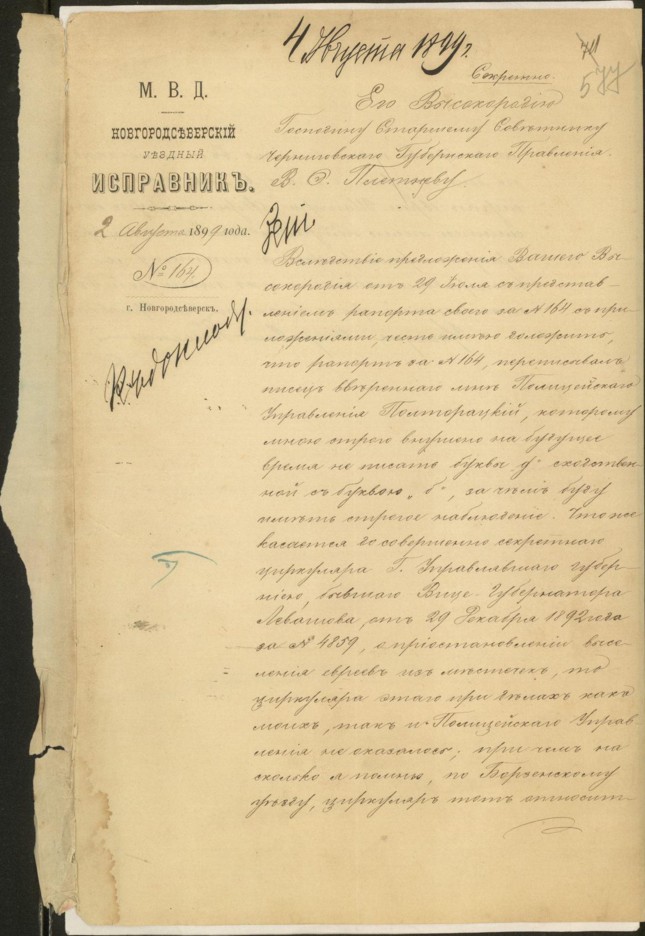 4 Августа 1899 г.
577
Секретно.
М. В. Д.
НОВГОРОДСѢВЕРСКІЙ
УѢЗДНЫЙ
ИСПРАВНИКЪ.
2 Августа 1899 года.
№ 164
г. Новгородсѣверск.
Его Высокородію
Господину Старшему Совѣтнику
Черниговскаго Губернскаго Правленія.
В. С.
Вслѣдствіе предложенія Вашего Вы-
сокородія отъ 29 Іюля съ представ-
леніемъ рапорта своего за № 164 съ при-
ложеніями, честь имѣю доложить,
что рапортъ за № 164, переписывалъ
писецъ ввѣреннаго мнѣ Полицейскаго
Управленія Полторацкій, которому
мною строго внушено на будущее
время не писать буквы „д“ сходствен-
ной съ буквою „б“, за чѣмъ буду
имѣть строгое наблюденіе. Что же
касается до совершенно секретнаго
циркуляра Г. Управлявшаго Губер-
ніею, бывшаго Вице-Губернатора
Левашова, отъ 29 Декабря 1892 года
за № 4859, о пріостановленіи высе-
ленія евреевъ изъ мѣстечекъ, то
циркуляра этаго при дѣлахъ какъ
моихъ, такъ и Полицейскаго Управ-
ленія не оказалось; при чемъ на
сколько я помню, по Борзенскому
уѣзду, циркуляръ тотъ относит-